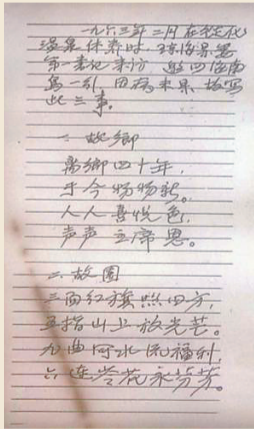 一九六三年二月在从化
温泉休养时，
第一书记来访，邀回海南
岛一引，因病未果，故写
此三章。
一、故乡
离乡四十年，
于今物物新。
人人喜悦色，
声声主席恩。
二、故园
三面红旗照四方，
五指山上放光芒。
九曲河水流福利，
六连岭花永芬芳。